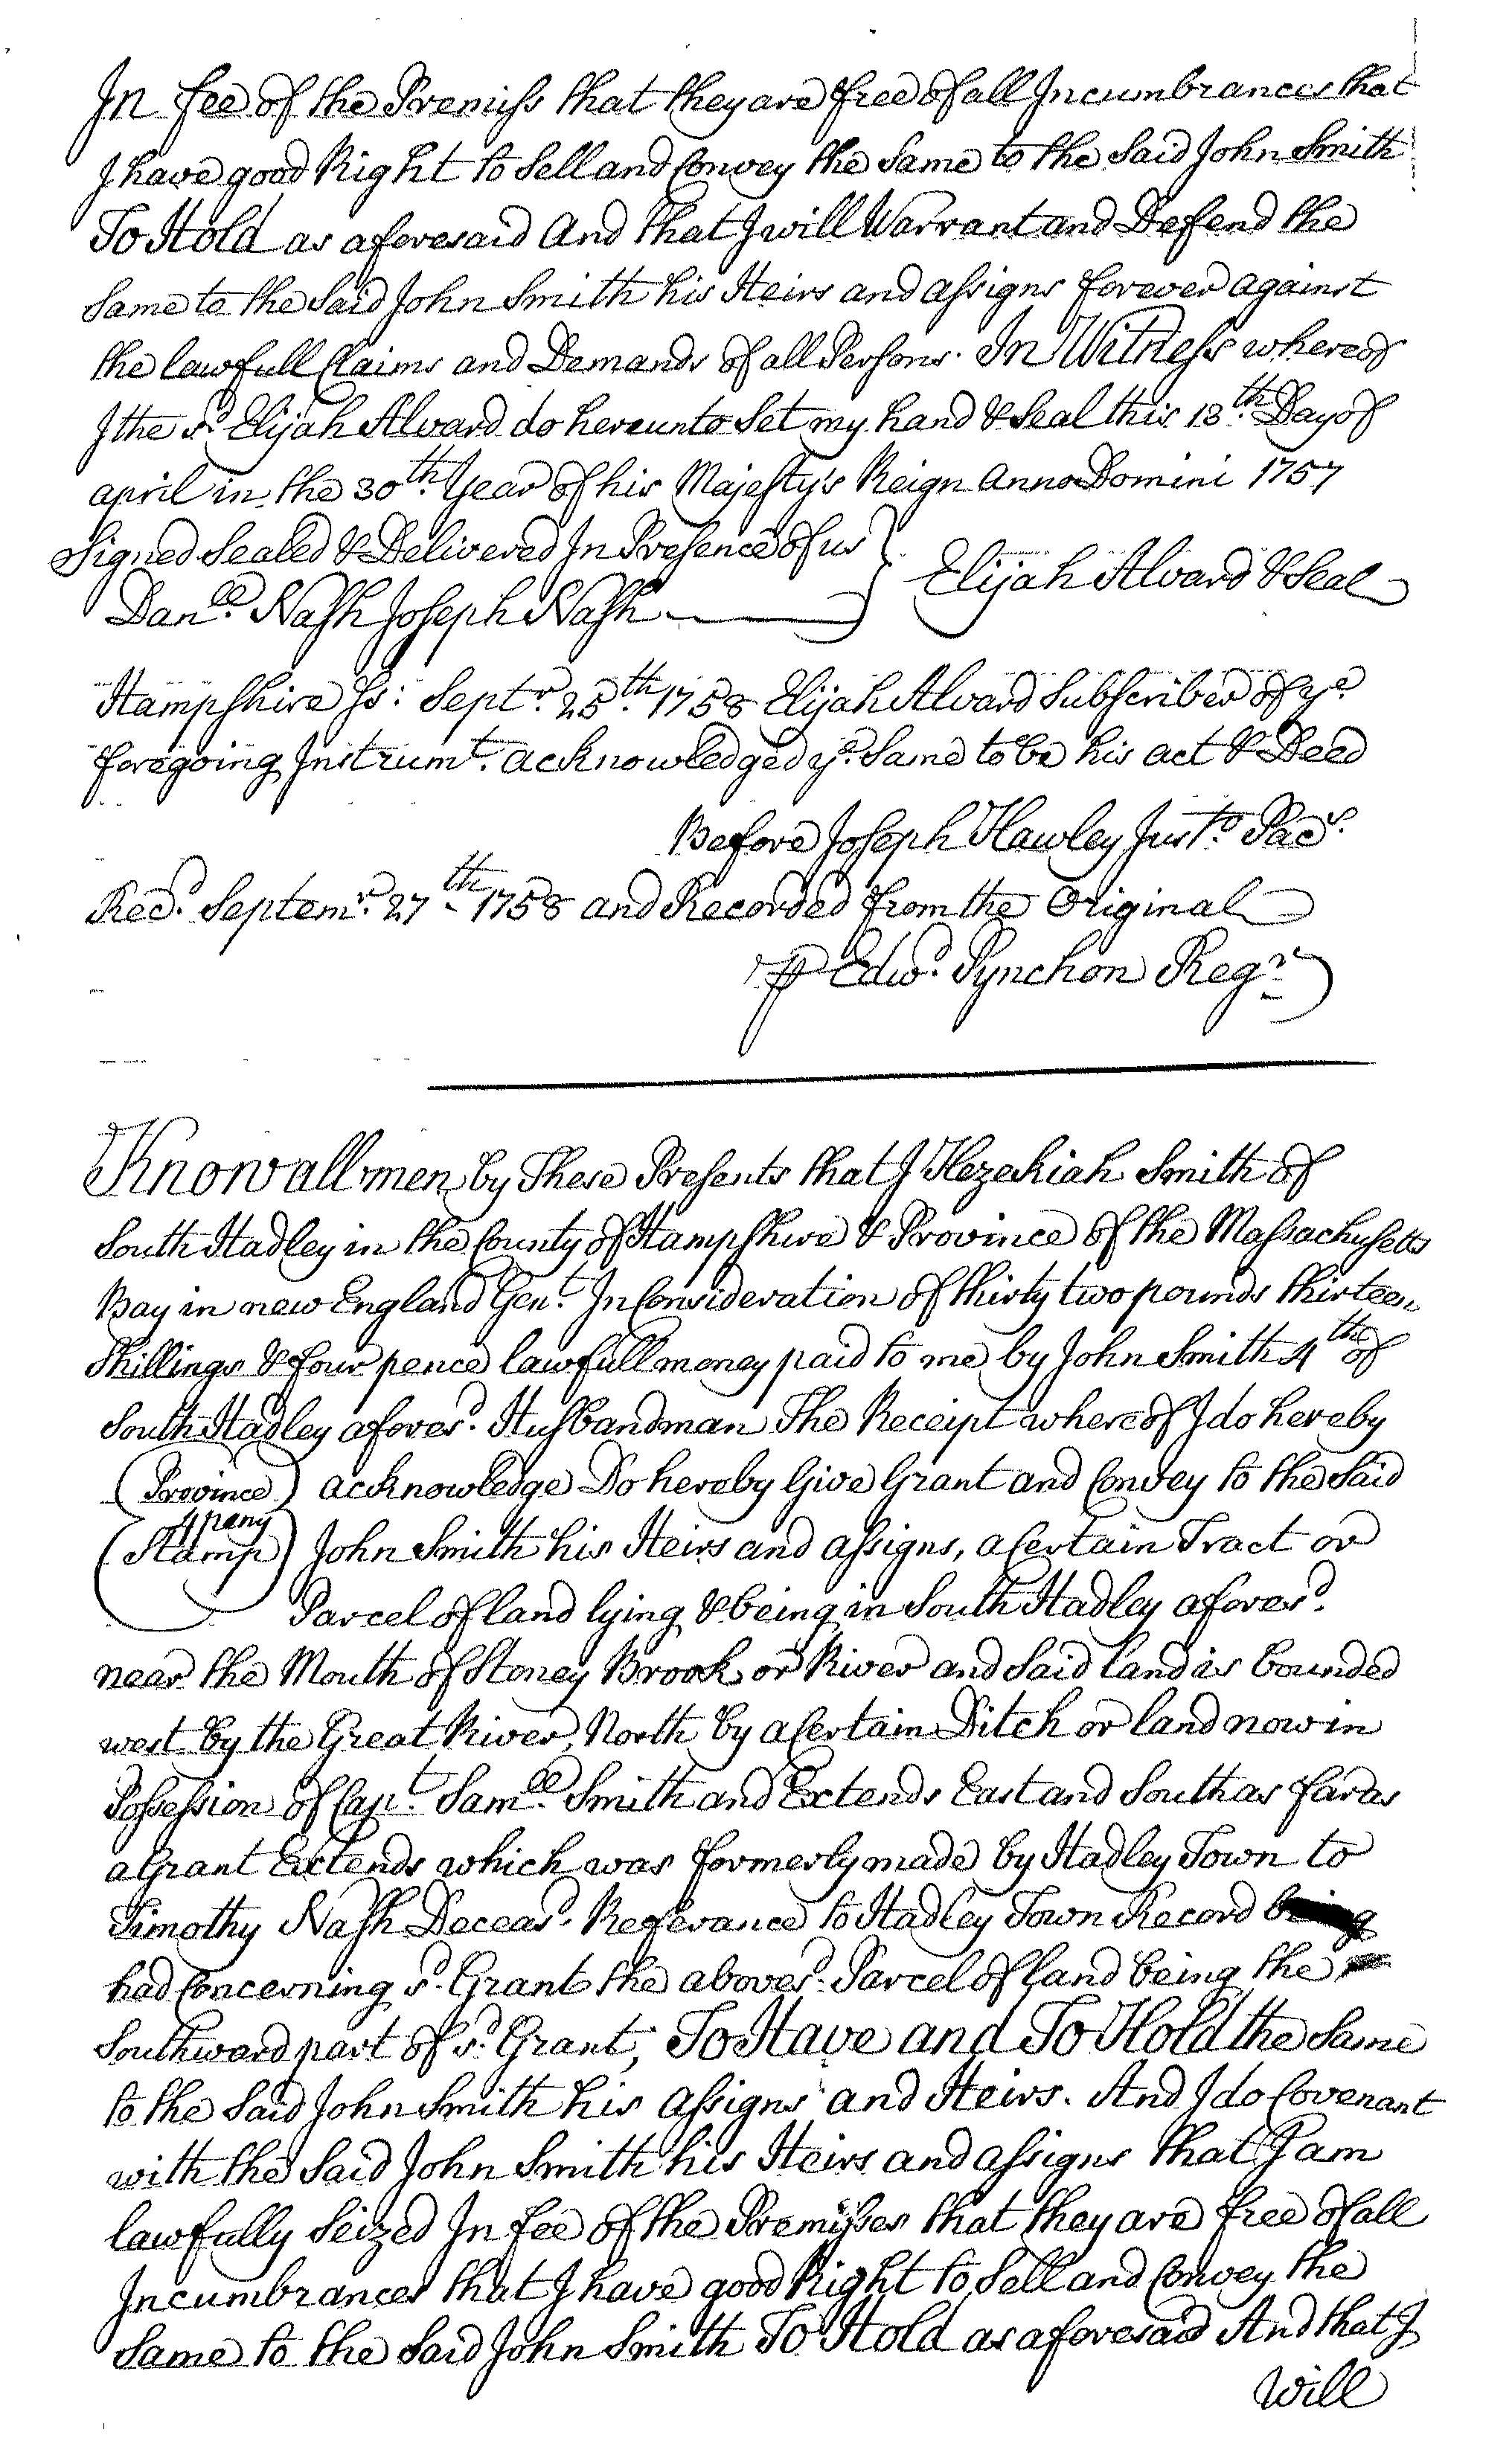 In fee of the Premiss that they are free of all Incumbrances that
I have good Right to Sell and Convey the Same to the Said John Smith
To Hold as aforesaid And that I will Warrant and Defend the
Same to the Said John Smith his Heirs and assigns forever against
the lawfull Claims and Demands of all Persons. In Witness whereof
I the sd. Elijah Alvard do hereunto Set my hand & Seal this 13th. Day of
april in the 30th. Year of his Majesty's Reign Anno Domini 1757
Signed Sealed & Delivered In Presence of us
Danll. Nash Joseph Nash
Elijah Alvard & Seal
Hampshire Ss: Septr. 25th. 1758 Elijah Alvard Subscriber of ye
foregoing Instrumt. acknowledged ye. Same to be his act & Deed
Before Joseph Hawley Justo. Pacs.
Recd. Septemr. 27th. 1758 and Recorded from the Original
⅌ Edwd. Pynchon Regr
Know all men by These Presents that I Hezekiah Smith of
South Hadley in the County of Hampshire & Province of the Massachusetts
Bay in new England Gent. In Consideration of thirty two pounds thirteen
Shillings & four pence lawfull money paid to me by John Smith 4th of
South Hadley aforesd. Husbandman The Receipt whereof I do hereby
(Province) acknowledge Do hereby Give Grant and Convey to the Said
4 peny
(Stamp) John Smith his Heirs and assigns, a Certain Tract or
Parcel of land lying & being in South Hadley aforesd.
near the Mouth of Stoney Brook or River and Said land is bounded
west by the Great River, North by a Certain Ditch or land now in
Possession of Capt. Samll. Smith and Extends East and South as far as
a Grant Extends which was formerly made by Hadley Town to
Timothy Nash Deceasd. Referance to Hadley Town Record being
had Concerning sd. Grant the abovesd. Parcel of land being the
Southward part of sd. Grant, To Have and To Hold the Same
to the Said John Smith his assigns and Heirs. And I do Covenant
with the Said John Smith his Heirs and assigns that I am
lawfully Seized In fee of the Premisses that they are free of all
Incumbrances that I have good Right to Sell and Convey the
Same to the Said John Smith To Hold as aforesaid And that I
Will